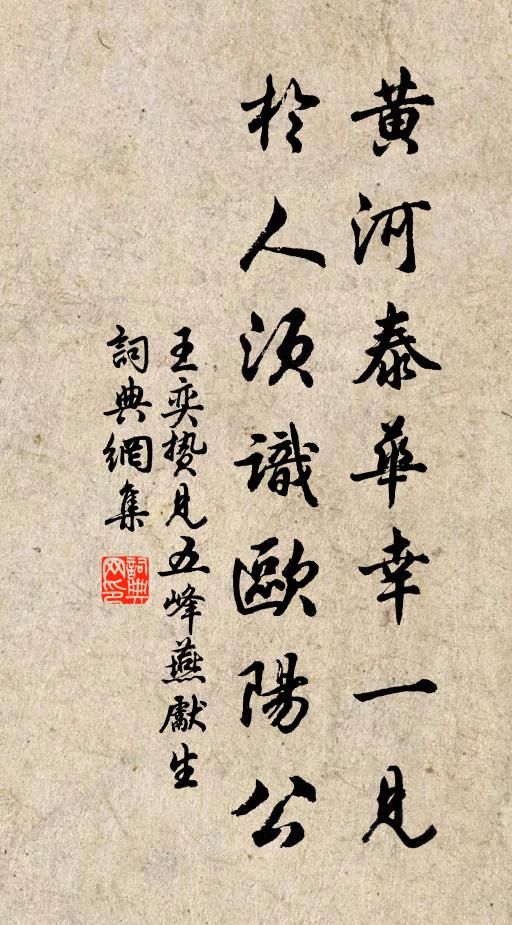 黄河泰華幸一見
於人須識歐陽公
王奕贄見五峰燕獻生
詞典網集
詞典網印